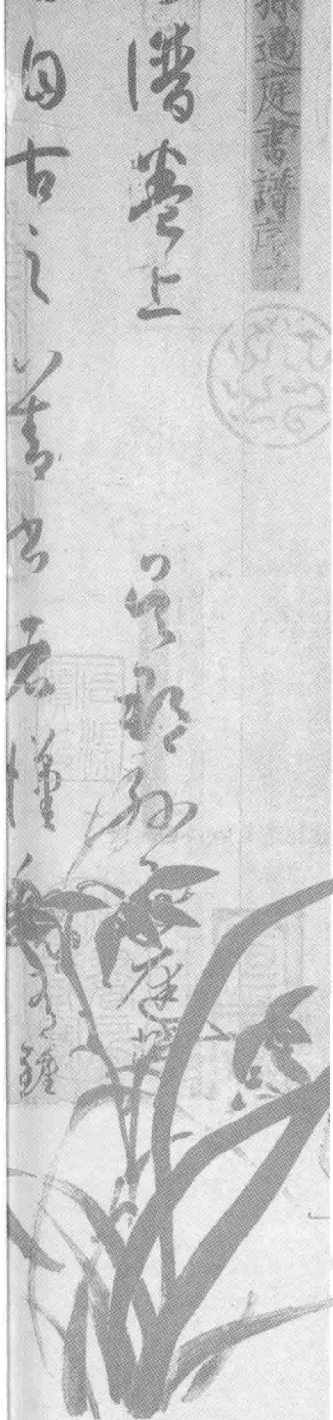 孫過庭書譜序
譜卷上 吳郡孫過庭撰
自古之善書者漢魏有鍾